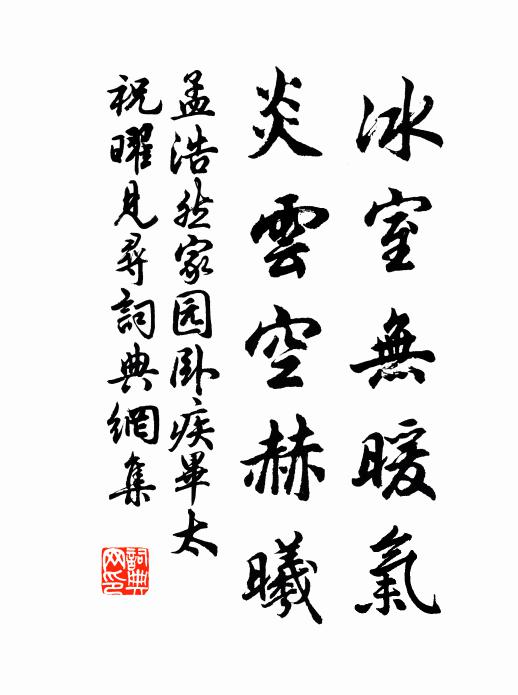 冰室無暖氣
炎雲空赫曦
孟浩然家园卧疾畢太
祝曜見尋詞典網集
詞典網印